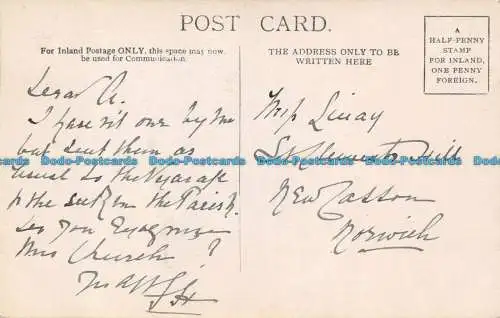 POST CARD.
For Inland Postage ONLY, this space may now
be used for Communication.
THE ADDRESS ONLY TO BE
WRITTEN HERE
A
HALF-PENNY
STAMP
FOR INLAND,
ONE PENNY
FOREIGN.
Dear A.
I have not one by me
but sent them as
usual to the Vicarage
the in the Parish.
you
Miss Church ?
Dodo-Postcards Dodo-Postcards Dodo-Postcards Dodo-Postcards Dodo-Postcards
Hill
New Catton
Norwich